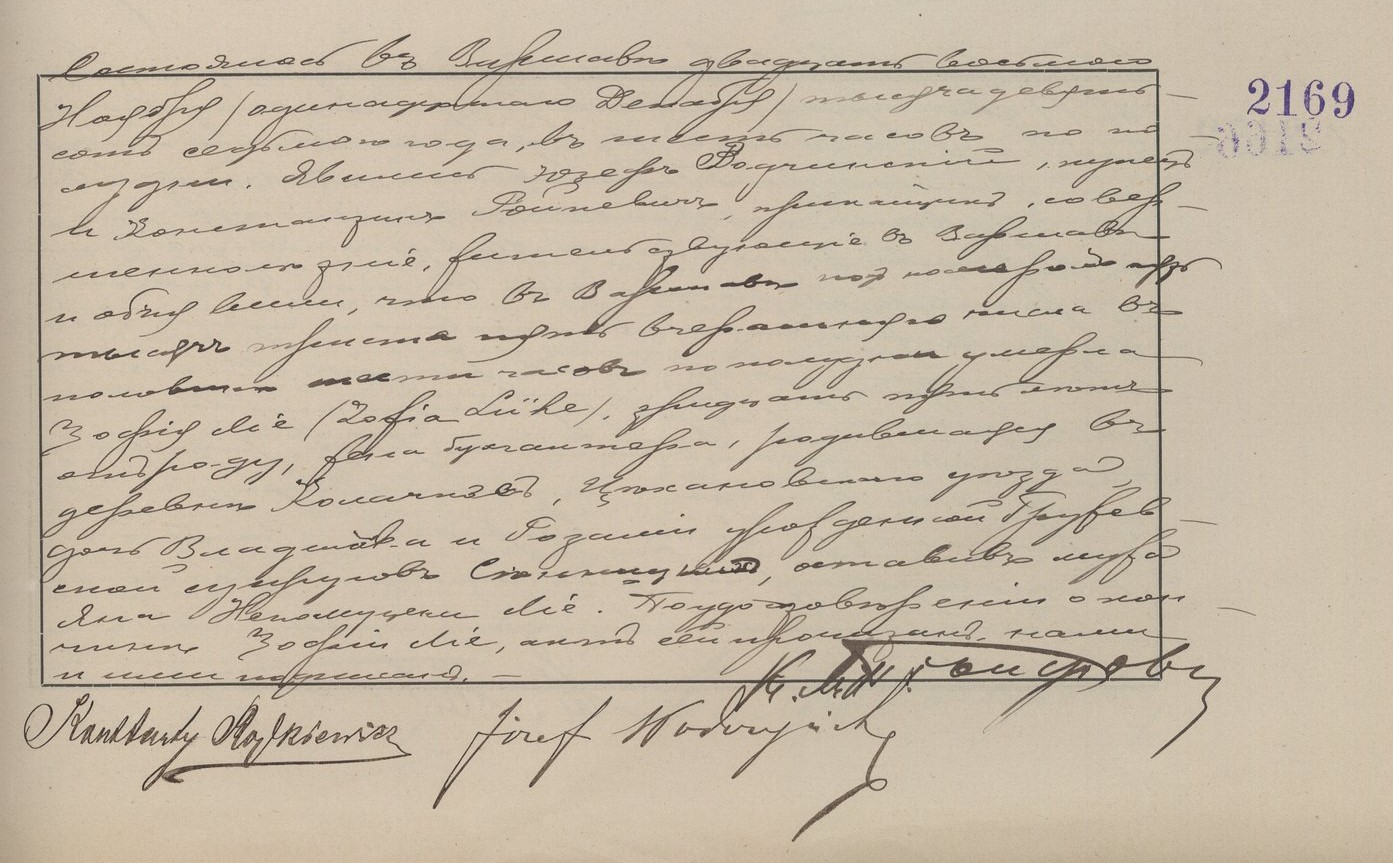 Состоялось въ Варшавѣ двадцать восьмого
Ноября (одинадцатаго Декабря) тысяча девять-
сотъ седьмого года, въ шесть часовъ по по
лудни. Явились Юзефъ Водчинскій, купецъ
и Константинъ Ройкевичъ, прикащикъ, совер-
шеннолѣтніе, жительствующіе въ Варшавѣ
и объявили, что въ Варшавѣ подъ номеромъ
тысячъ триста пять вчерашняго числа въ
половинѣ шести часовъ по полудни умерла
Зофія Ліе (Zofia Lühe), тридцать пять лѣтъ
отъ роду, жена бухгалтера, родившаяся въ
деревнѣ Цѣхановскаго уѣзда,
дочь и Розаліи урожденной
супруговъ оставивъ мужа
Яна Непомуцена Ліе. По удостовѣреніи о кон
чинѣ Зофіи Ліе, актъ сей прочитанъ, нами
и ими подписанъ. —
Konstanty Roykiewicz Józef Wodczyński
2169